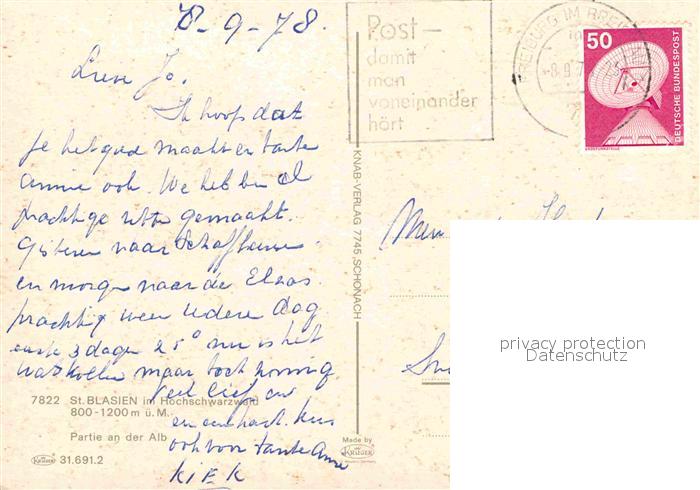 8-9-78.
Lieve Jo.
Ik hoop dat
je het goed maakt en tante
Annie ook. We hebben al
prachtige ritten gemaakt.
Gisteren naar Schaffhausen
en morgen naar de Elzas
prachtig weer iedere dag
eerste 3 dagen 25° nu is het
wat koeler maar toch zonnig
veel liefs en
en een hart. kus
ook voor tante Annie
KIEK
7822 St. BLASIEN im Hochschwarzwald
800-1200 m ü. M.
Partie an der Alb
KRÜGER 31.691.2
KNAB-VERLAG 7745 SCHONACH
Made by
KRÜGER
Post-
damit
man
voneinander
hört
FREIBURG IM BREI
-8.9.7
50
DEUTSCHE BUNDESPOST
ERDEFUNKSTELLE
privacy protection
Datenschutz